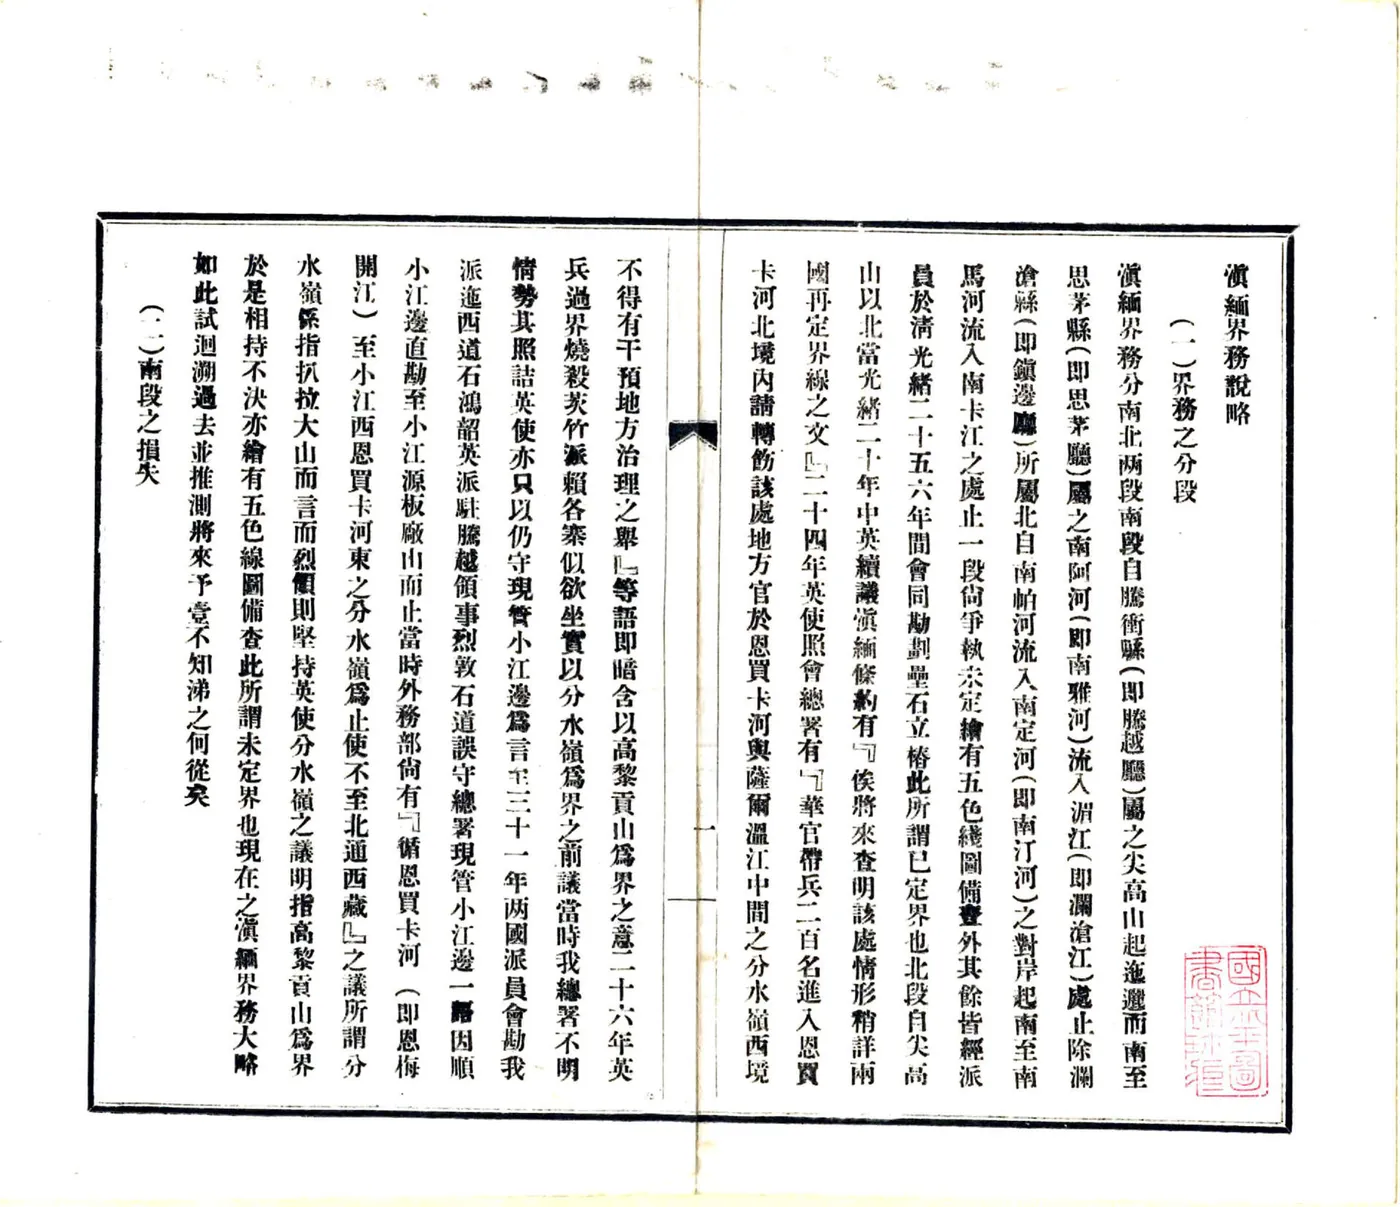 滇緬界務說略
(一)界務之分段
滇緬界務分南北两段南段自騰衝縣(即騰越廳)屬之尖高山起迤邐而南至
思茅縣(即思茅廳)屬之南阿河(即南雅河)流入湄江(即瀾滄江)處止除瀾
滄縣(即鎮邊廳)所屬北自南帕河流入南定河(即南汀河)之對岸起南至南
馬河流入南卡江之處止一段尙爭執未定繪有五色綫圖備查外其餘皆經派
員於淸光緒二十五六年間會同勘劃壘石立樁此所謂已定界也北段自尖高
山以北當光緒二十年中英續議滇緬條約有『俟將來查明該處情形稍詳兩
國再定界線之文』二十四年英使照會總署有『華官帶兵二百名進入恩買
卡河北境內請轉飭該處地方官於恩買卡河與薩爾溫江中間之分水嶺西境
不得有干預地方治理之舉』等語即暗含以高黎貢山爲界之意二十六年英
兵過界燒殺茨竹派賴各寨似欲坐實以分水嶺爲界之前議當時我總署不明
情勢其照詰英使亦只以仍守現管小江邊爲言至三十一年两國派員會勘我
派迤西道石鴻韶英派駐騰越領事烈敦石道誤守總署現管小江邊一語因順
小江邊直勘至小江源板廠山而止當時外務部尙有『循恩買卡河(即恩梅
開江)至小江西恩買卡河東之分水嶺爲止使不至北通西藏』之議所謂分
水嶺係指扒拉大山而言而烈領則堅持英使分水嶺之議明指高黎貢山爲界
於是相持不決亦繪有五色線圖備查此所謂未定界也現在之滇緬界務大略
如此試迴溯過去並推測將來予壹不知涕之何從矣
(二)南段之損失
一
國立北平圖書館珍藏